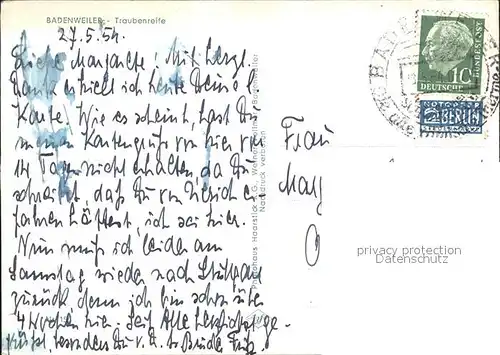 BADENWEILER - Traubenreife
27.5.54.
Liebe Margarete! Mit herzl.
Dank erhielt ich heute Deine l.
Karte! Wie es scheint, hast Du
meinen Kartengruß von hier vor
14 Tagen nicht erhalten, da Du
schreibst, daß Du von Ulrich er-
fahren hättest, ich sei hier.
Nun muß ich leider am
Samstag wieder nach Stuttgart
zurück, denn ich bin schon über
4 Wochen hier. Seid alle herzlichst ge-
grüßt, besonders Du v. d. Bruder Fritz
Photohaus Haarstick
Nachdruck verboten
Frau
Marg
10
DEUTSCHE
BUNDESPOST
NOTOPFER
2 BERLIN
STEUERMARKE
privacy protection
Datenschutz